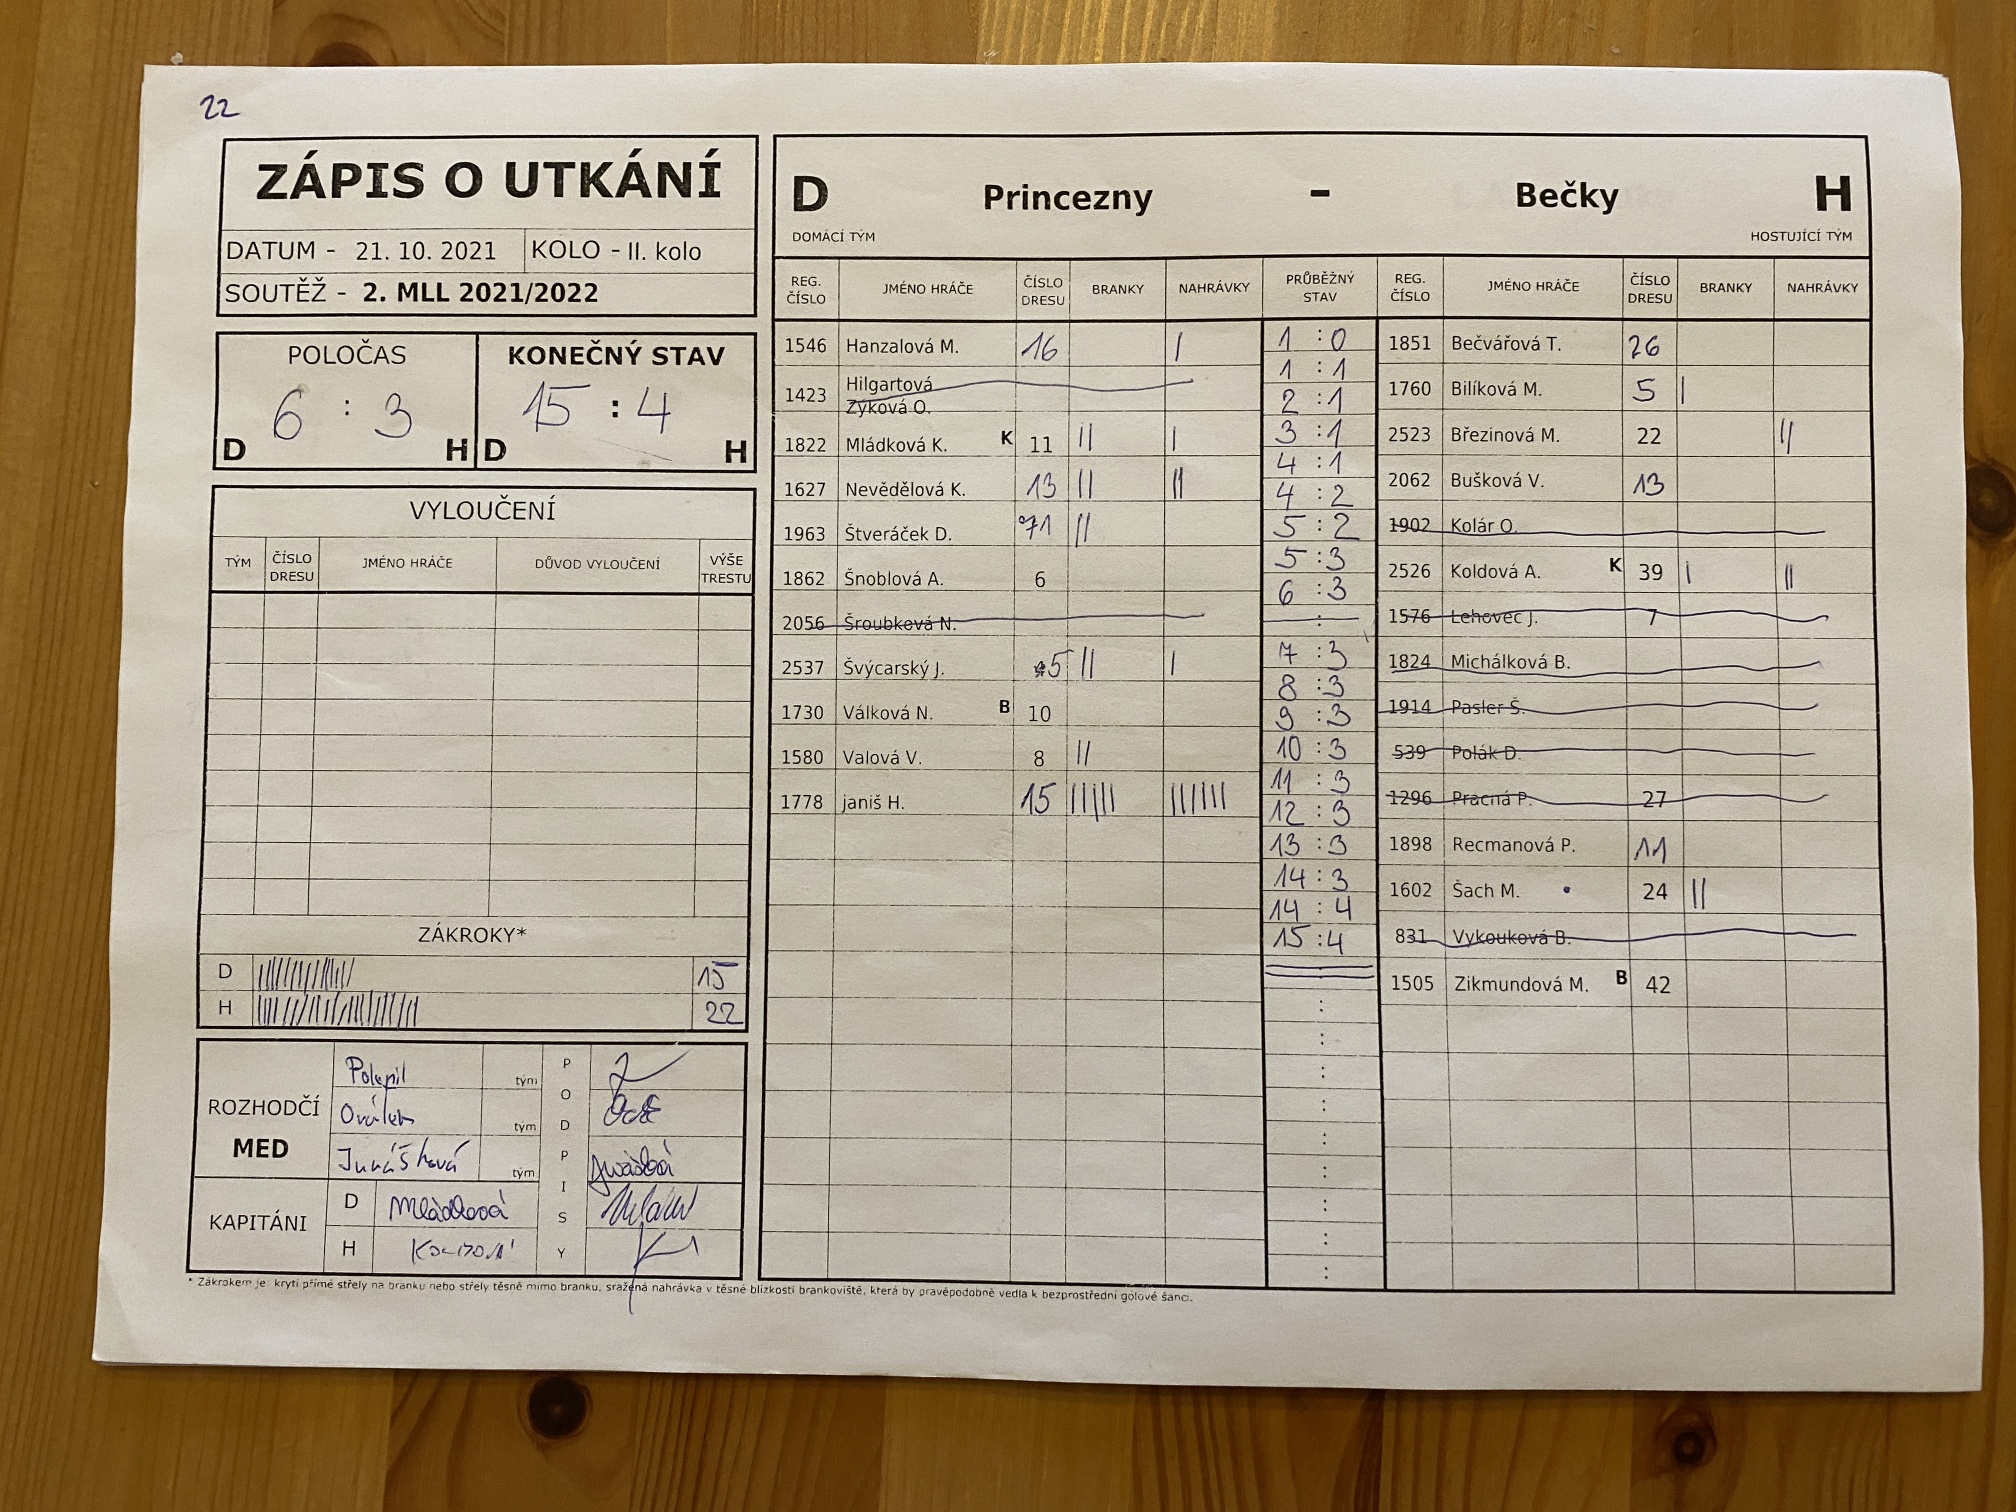 22
ZÁPIS O UTKÁNÍ
DATUM - 21. 10. 2021 KOLO - II. kolo
SOUTĚŽ - 2. MLL 2021/2022
POLOČAS KONEČNÝ STAV
6 : 3 15 : 4
D H D H
VYLOUČENÍ
TÝM ČÍSLO DRESU JMÉNO HRÁČE DŮVOD VYLOUČENÍ VÝŠE TRESTU
ZÁKROKY*
D 15
H 22
ROZHODČÍ
MED
Polepil tým
tým
tým
PODPISY
KAPITÁNI
D Mládková
H
D Princezny - Bečky H
DOMÁCÍ TÝM HOSTUJÍCÍ TÝM
REG. ČÍSLO JMÉNO HRÁČE ČÍSLO DRESU BRANKY NAHRÁVKY
1546 Hanzalová M. 16 |
1423 Hilgartová
Zýková O.
1822 Mládková K. K 11 || |
1627 Nevědělová K. 13 || ||
1963 Štveráček D. 71 ||
1862 Šnoblová A. 6
2056 Šroubková N.
2537 Švýcarský J. 5 || |
1730 Válková N. B 10
1580 Valová V. 8 ||
1778 janiš H. 15 ||||| ||||||
PRŮBĚŽNÝ STAV
1 : 0
1 : 1
2 : 1
3 : 1
4 : 1
4 : 2
5 : 2
5 : 3
6 : 3
:
7 : 3
8 : 3
9 : 3
10 : 3
11 : 3
12 : 3
13 : 3
14 : 3
14 : 4
15 : 4
:
:
:
:
:
:
:
:
:
REG. ČÍSLO JMÉNO HRÁČE ČÍSLO DRESU BRANKY NAHRÁVKY
1851 Bečvářová T. 26
1760 Bilíková M. 5 |
2523 Březinová M. 22 ||
2062 Bušková V. 13
1902 Kolár O.
2526 Koldová A. K 39 | ||
1576 Lehovec J. 7
1824 Michálková B.
1914 Pasler Š.
539 Polák D.
1296 Pracná P. 27
1898 Recmanová P. 11
1602 Šach M. 24 ||
831 Vykouková B.
1505 Zikmundová M. B 42
* Zákrokem je: krytí přímé střely na branku nebo střely těsně mimo branku, sražená nahrávka v těsné blízkosti brankoviště, která by pravěpodobně vedla k bezprostřední gólové šanci.